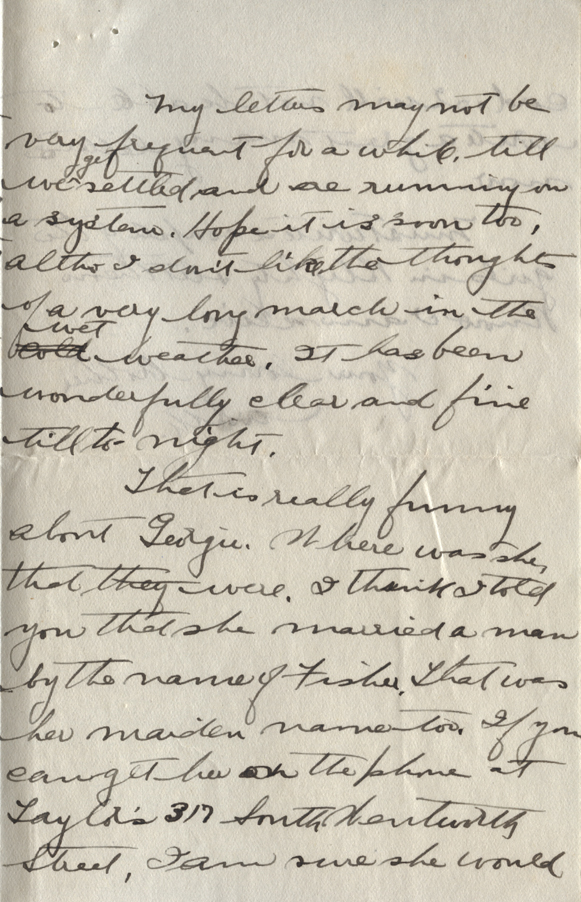 My letters may not be
very frequent for a while, till
we get settled and are running on
a system. Hope it is soon too,
altho I don't like the thoughts
of a very long march in the
cold wet weather. It has been
wonderfully clear and fine
till to-night.
That is really funny
about Georgie. Where was she,
that they were. I think I told
you that she married a man
by the name of Fisher. That was
her maiden name too. If you
can get her on the phone at
Taylor's 317 South Wentworth
Street, I am sure she would